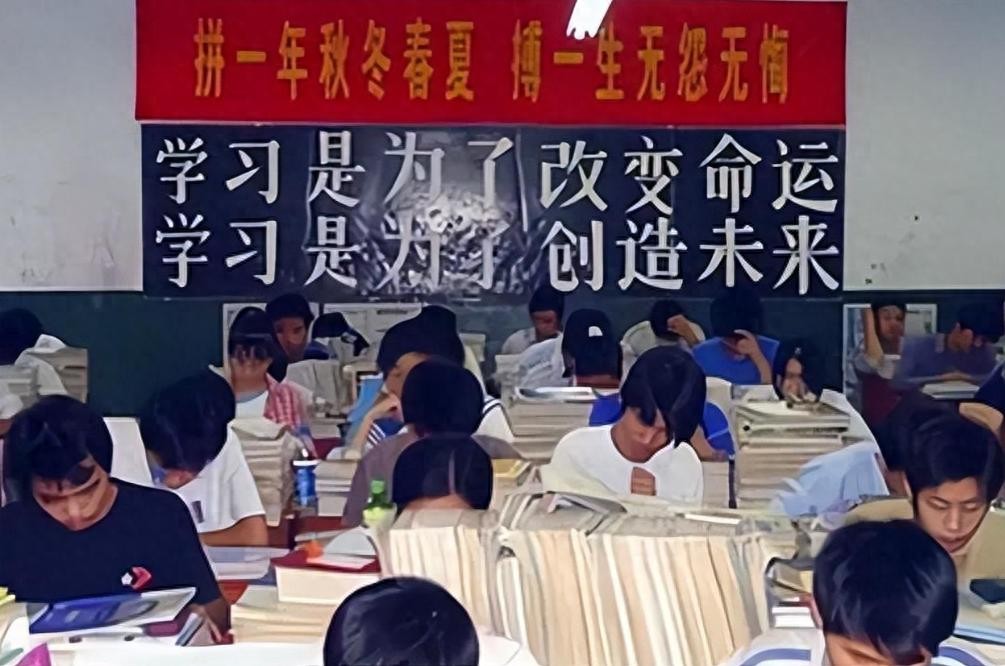 拼一年秋冬春夏 搏一生无怨无悔
学习是为了改变命运
学习是为了创造未来